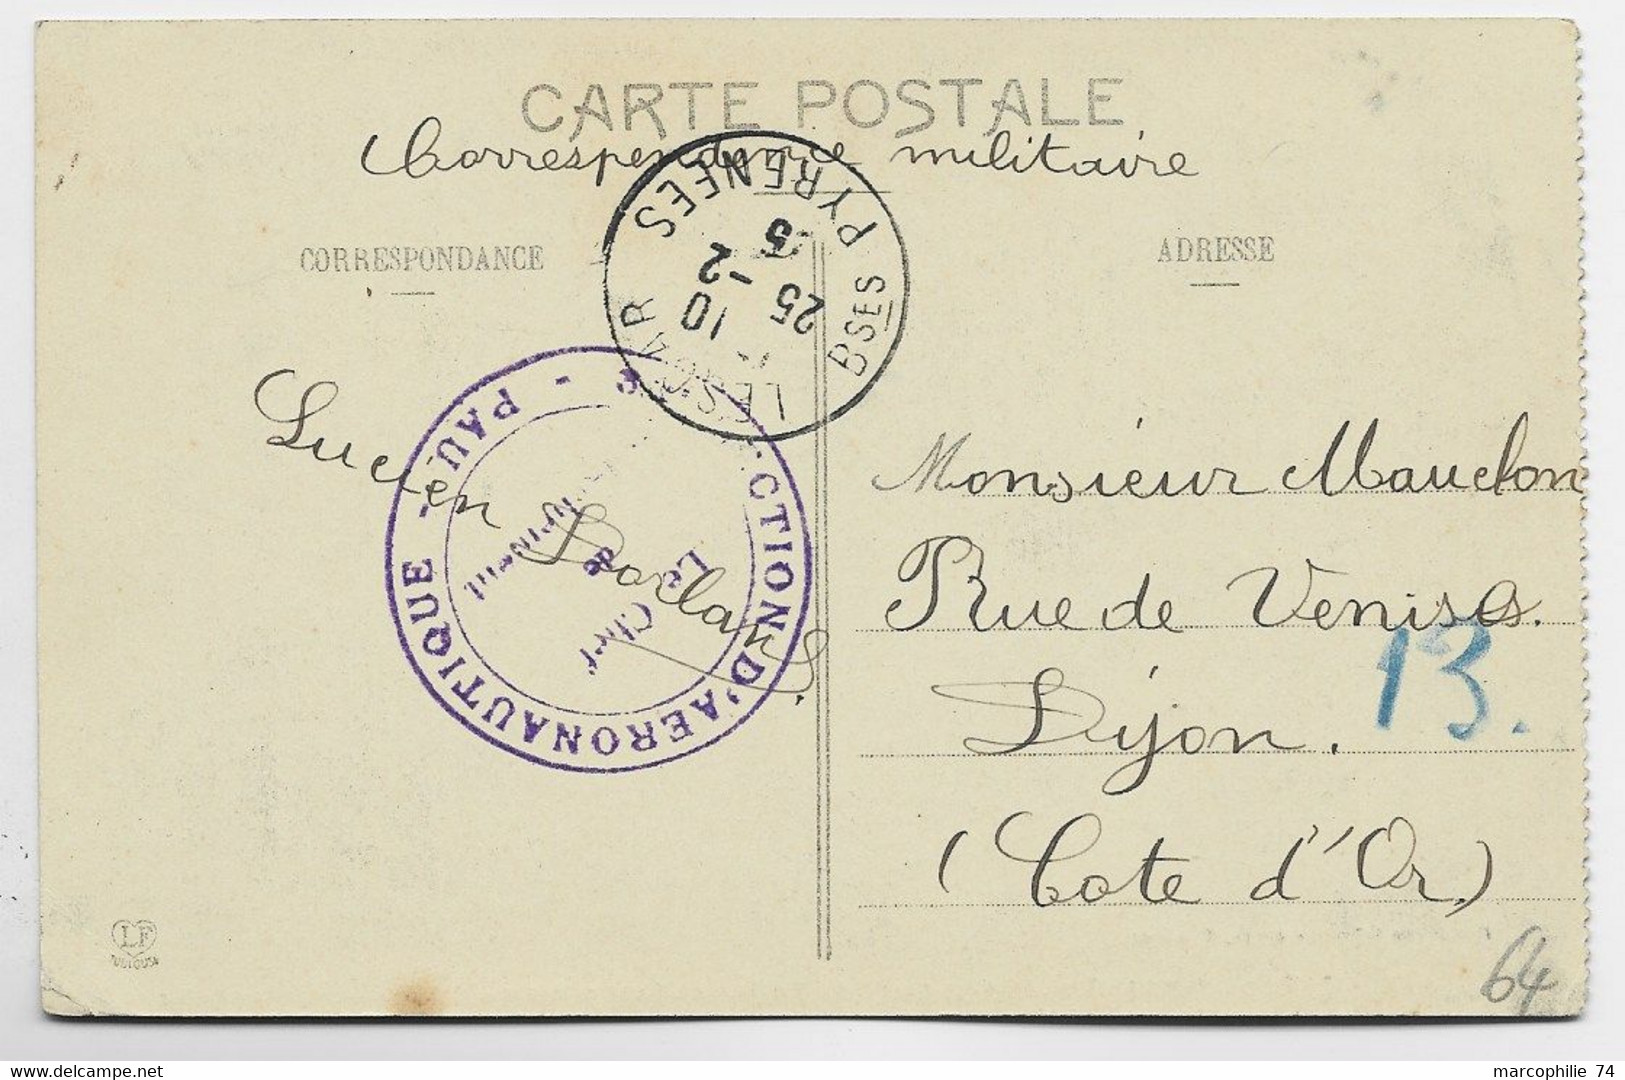 CARTE POSTALE
Correspondance militaire
CORRESPONDANCE
ADRESSE
LESCAR
BSES PYRENEES
10
25 -2
5
CTION D'AERONAUTIQUE - PAU -
Le Chef
de
Lucien
Monsieur Mauclon
Rue de Venise.
13.
Dijon.
(Cote d'Or)
LF
TOULOUSE
64
marcophilie 74